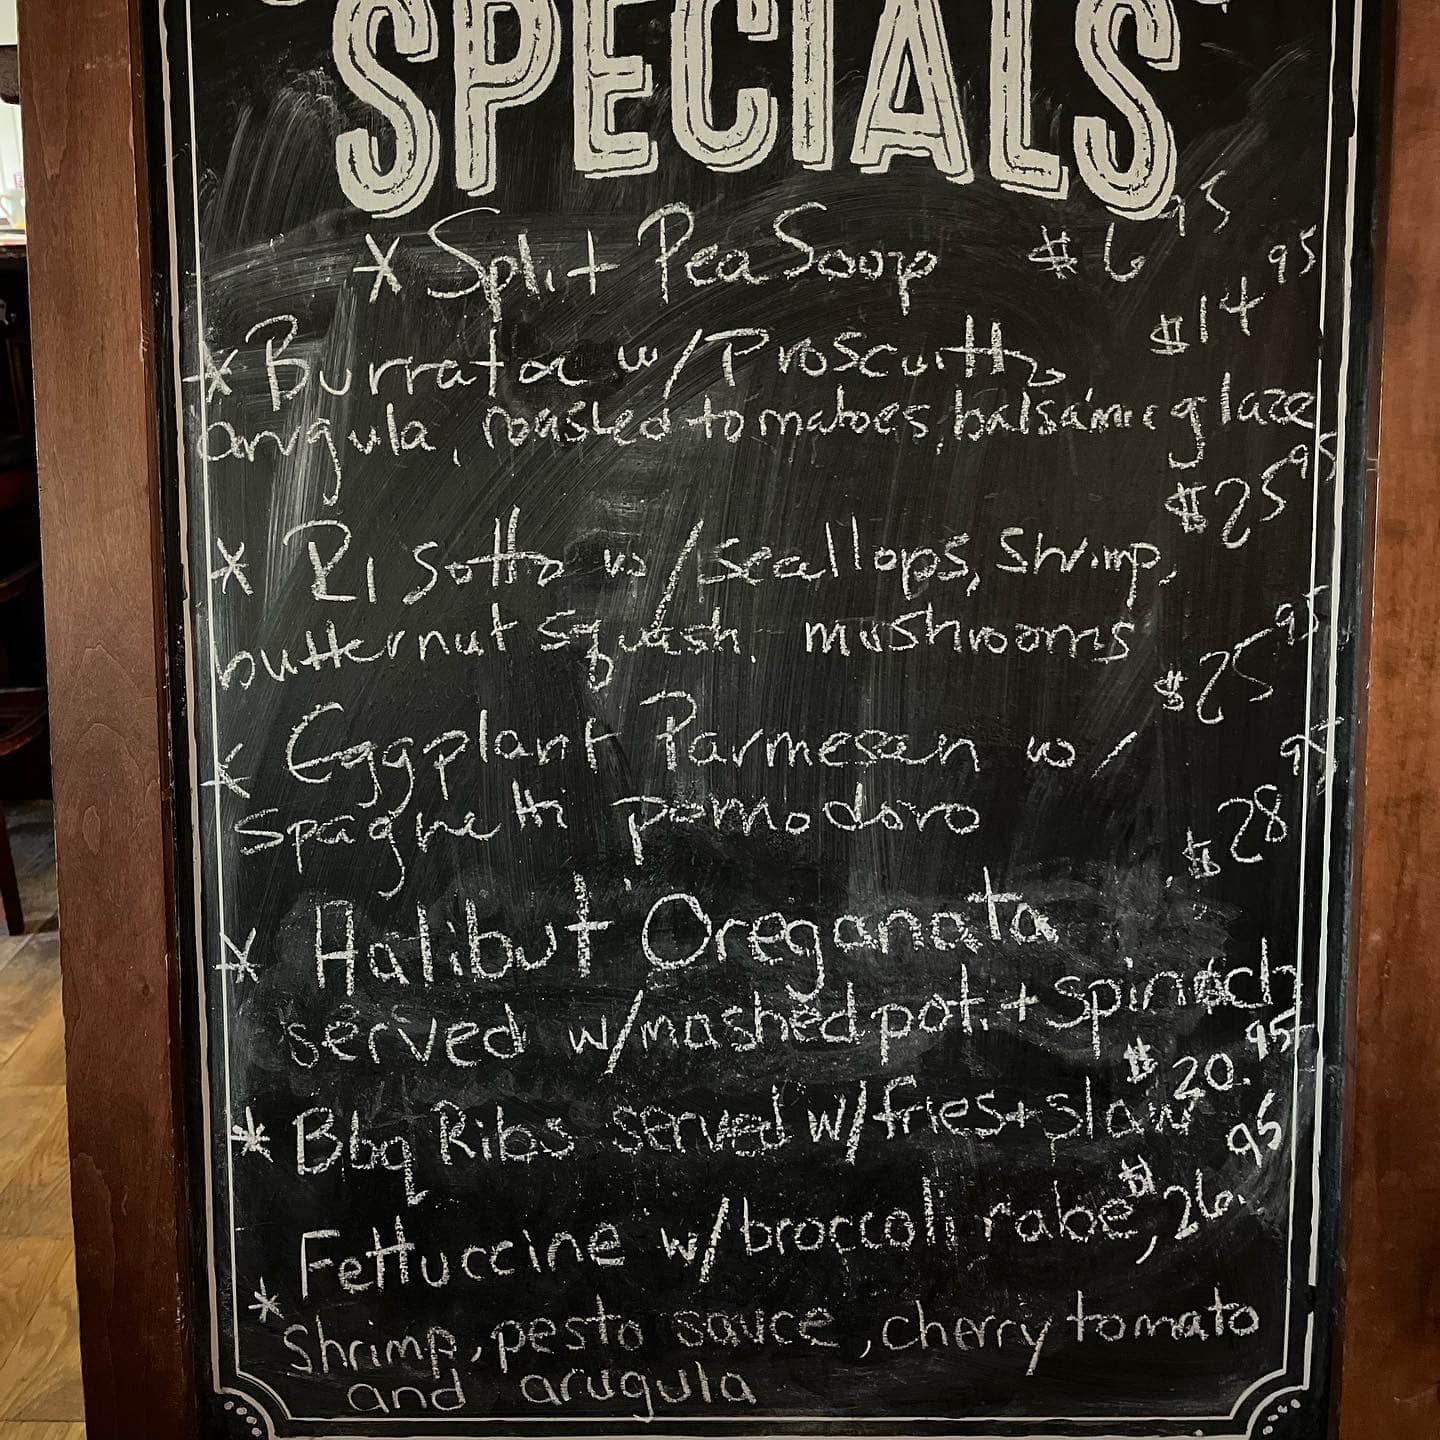 SPECIALS
* Split Pea Soup $6 95
* Burrata w/ Proscuitto $14 95
arugula, roasted tomatoes, balsamic glaze
* Risotto w/ scallops, shrimp, $25 95
butternut squash, mushrooms
* Eggplant Parmesan w/ $25 95
spaghetti pomodoro
* Halibut Oreganata $28 95
served w/mashed pot. + spinach
* Bbq Ribs served w/fries + slaw $20. 95
* Fettuccine w/broccoli rabe, $26. 95
shrimp, pesto sauce, cherry tomato
and arugula